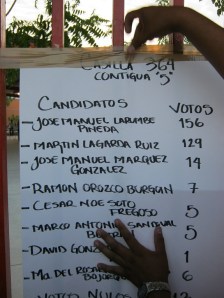 CASILLA 364
CONTIGUA "5"
CANDIDATOS VOTOS
- JOSE MANUEL LARUMBE PINEDA 156
- MARTIN LAGARDA RUIZ 129
- JOSE MANUEL MARQUEZ GONZALEZ 14
- RAMON OROZCO BURGOIN 7
- CESAR NOE SOTO FREGOSO 5
- MARCO ANTONIO SANDOVAL 5
- DAVID 1
- Ma. DEL 6
VOTOS NULOS